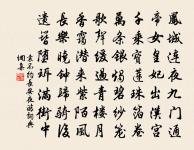 鳳城連夜九門通
帝女皇妃出漢宮
千乘寶蓮珠箔卷
萬條銀燭碧紗籠
歌聲緩過青樓月
香靄潛來紫陌風
長樂曉鐘歸騎後
遺簪墮珥滿街中
袁不約長安夜遊詞典
網集